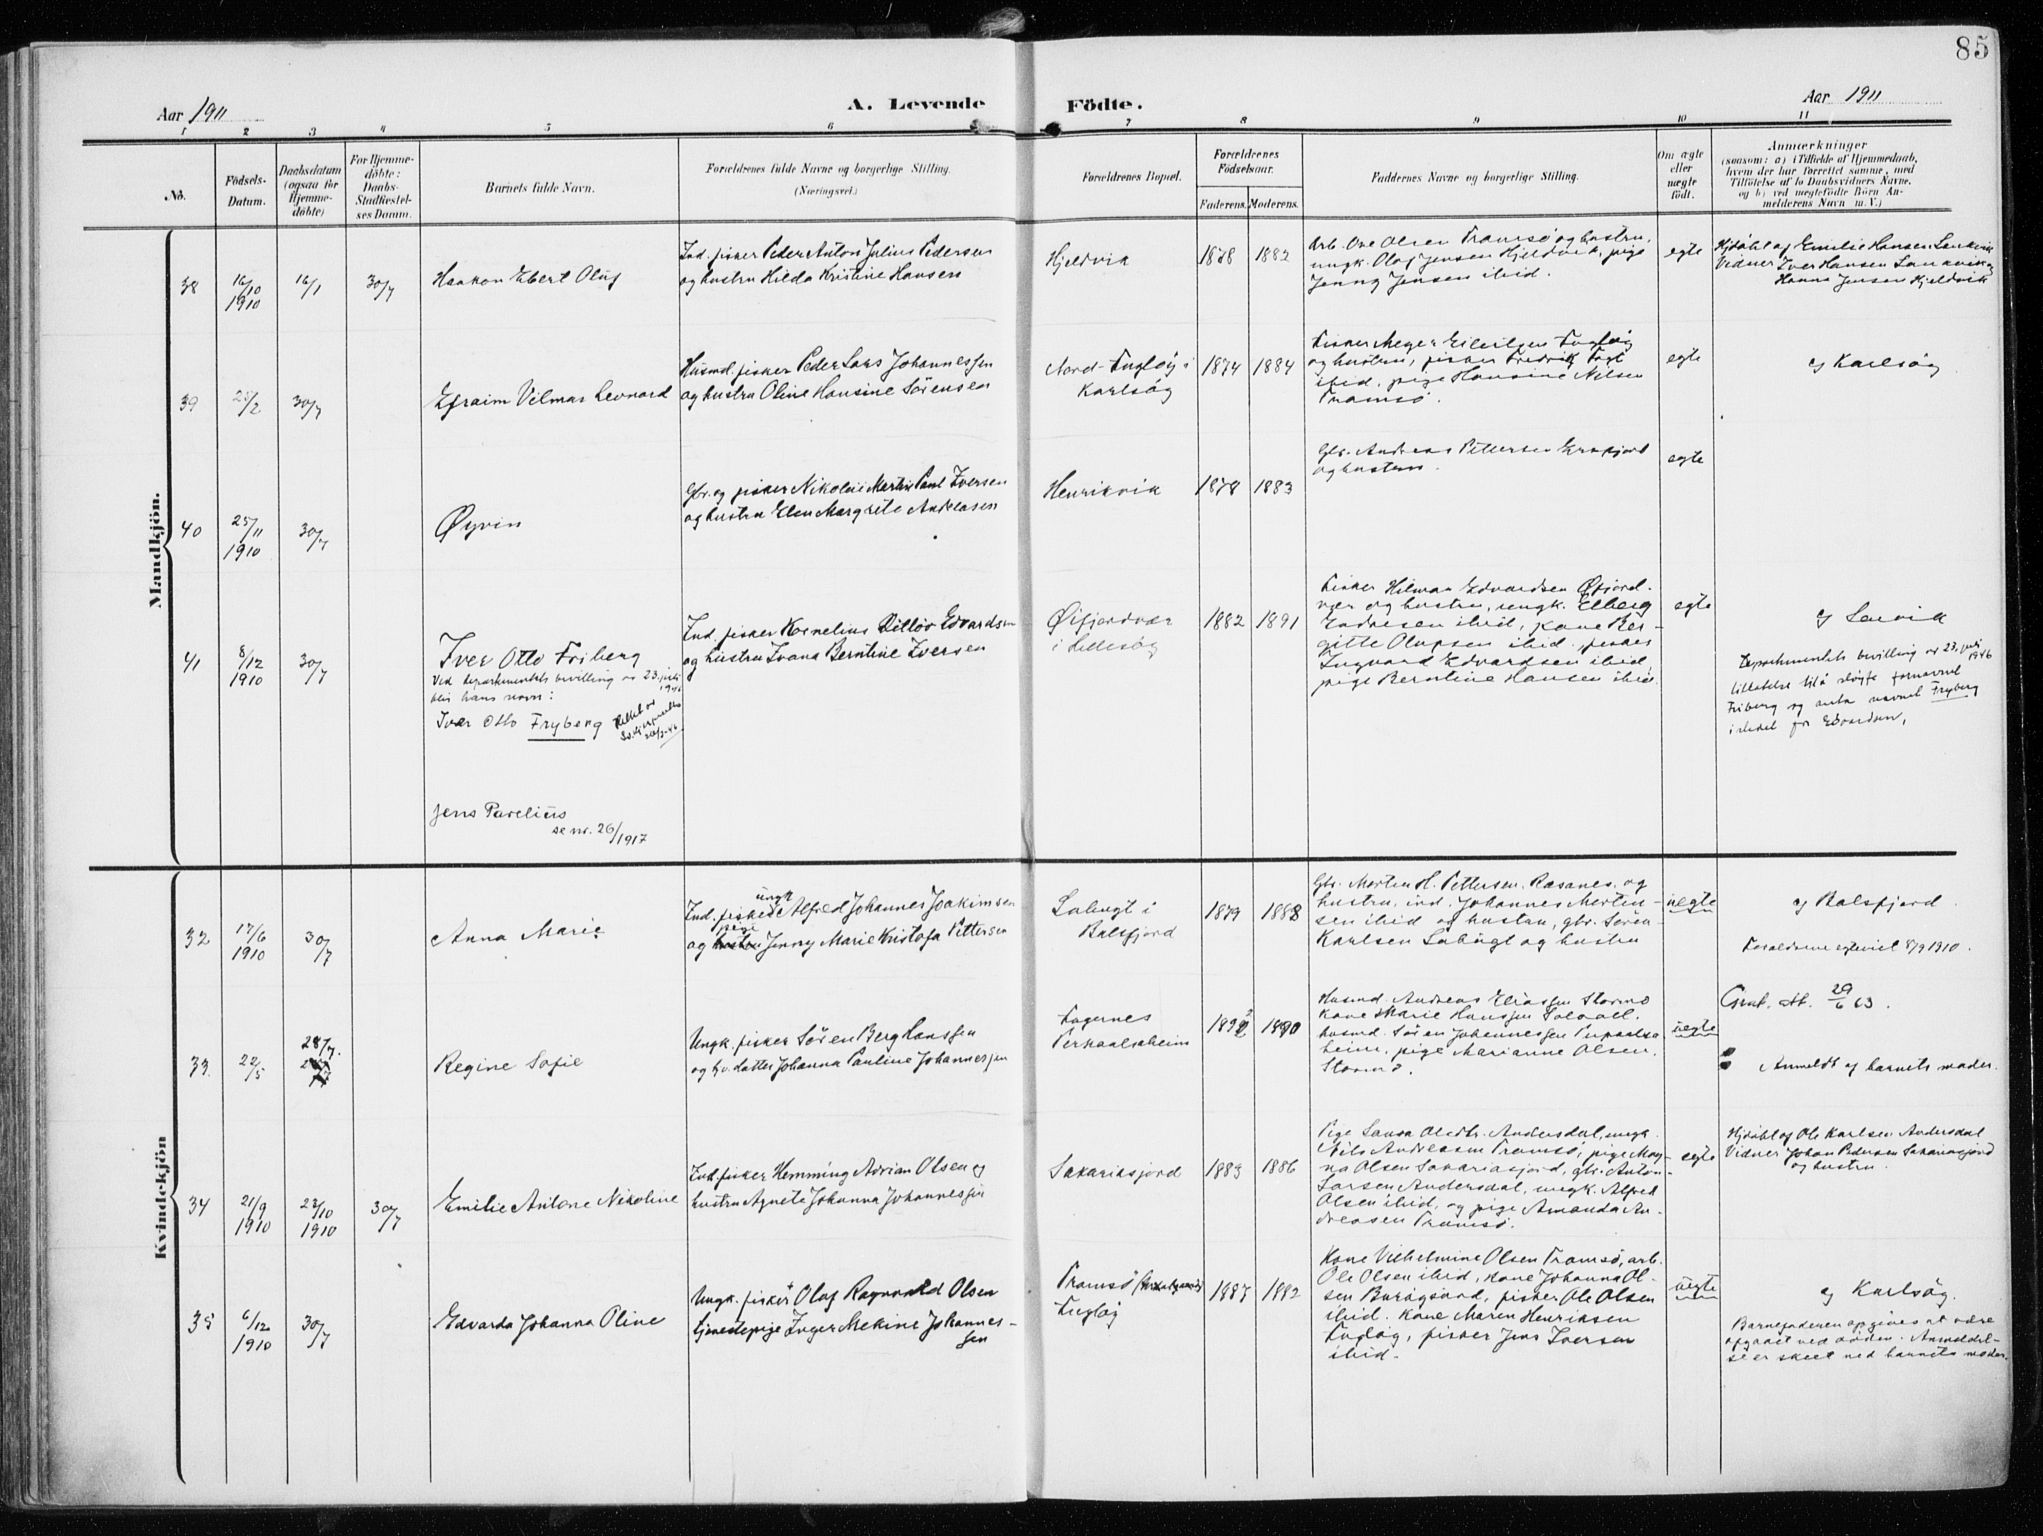 85
Aar 1911
A. Levende Födte.
Aar 1911
1 2 3 4 5 6 7 8 9 10 11
No.
Födsels-Datum.
Daabsdatum (ogsaa for Hjemme-döbte)
For Hjemme-döbte: Daabs-Stadfæstel-ses Datum.
Barnets fulde Navn.
Forældrenes fulde Navne og borgerlige Stilling.
(Næringsvei.)
Forældrenes Bopæl.
Forældrenes Födselsaar.
Faderens. Moderens.
Faddernes Navne og borgerlige Stilling.
Om ægte eller uægte födt.
Anmærkninger
(saasom: a) i Tilfælde af Hjemmedaab,
hvem der har forrettet samme, med
Tilföielse af to Daabsvidners Navne,
og b) ved uegtefödte Börn An-
melderens Navn m. V.)
Mandkjön.
38
16/10
1910
16/1
30/7
Haakon Ebert Oluf
Ind. fisker Peder Anton Julius Pedersen
og hustru Hilda Kristine Hansen
Hjeldvik
1878
1882
Arb. Ove Olsen Tromsø og hustru,
ungk. Olaf Jensen Hjeldvik, pige
Jenny Jensen ibid.
egte
Hjdøbt af Emilie Hansen
Vidner Iver Hansen
Hanna Jensen Hjeldvik
39
25/2
30/7
Efraim Vilmar Leonard
Husmd. fisker Peder Lars Johannessen
og hustru Oline Hansine Sørensen
Nord-Fugløy i
Karlsøy
1874
1884
Fisker Meyer Eilertsen Fugløy
og hustru, fisker Fredrik Fogt
ibid, pige Hansine Nilsen
Tromsø.
egte
af Karlsøy
40
25/11
1910
30/7
Øyvin
Gbr. og fisker Nikolai Martin Paul Iversen
og hustru Elen Margrete Andreasen
Henrikvik
1878
1883
Gbr. Andreas Pettersen
og hustru.
egte
41
8/12
1910
30/7
Iver Otto Friberg
Ved departementets bevilling av 23. juli
1946
blir hans navn:
Iver Otto Fryberg
Ind. fisker Kornelius Ditløv Edvardsen
og hustru Ivana Berntine Iversen
Øifjordvær
i Hillesøy
1882
1891
Fisker Hilmar Edvardsen Øifjord-
vær og hustru, ungk. Elberg
Endresen ibid, kone Ber-
gitte Olufsen ibid, fisker
Ingvard Edvardsen ibid,
pige Berntine Hansen ibid.
egte
af Lenvik
Departementets bevilling av 23. juli
1946
tillatelse til å sløyfe fornavnet
Friberg og anta navnet Fryberg
istedet for Edvardsen,
Jens Parelius
se nr. 26/1917
Kvindekjön
32
17/6
1910
30/7
Anna Marie
ungk
Ind. fisker Alfred Johannes Joakimsen
pige
og hustru Jenny Marie Kristofa Pettersen
Balsfjord
1879
1888
Gbr. Morten H. Pettersen, Ræsanes, og
hustru, ind. Johannes Morten-
sen ibid og hustru, gbr. Søren
Karlsen og hustru
uegte
af Balsfjord
Forældrene egteviet 8/9 1910.
33
22/5
28/7.
Regine Sofie
Ungk. fisker Søren Berg Hanssen
og hv. datter Johanna Pauline Johannessen
Fagernes
1892
1890
Husmd. Andreas Eliassen Stormo
kone Marie Hanssen
husmd. Søren Johannessen
heim, pige Marianne Olsen,
Stormo.
uegte
Gmt. att. 29/6 63.
Anmeldt af barnets moder.
34
21/9
1910
23/10
1910
30/7
Emilie Antone Nikoline
Ind. fisker Hemming Adrian Olsen og
hustru Agnete Johanna Johannessen
Sakariasjord
1883
1886
Pige Laura Andersdal, ungk.
Nils Andreasen Tromsø, pige Mag-
na Olsen Sakariasjord, gbr. Anton
Larsen Andersdal, ungk. Alfred
Olsen ibid, og pige Amanda An-
dreasen Tromsø.
egte
Hjdøbt af Ole Karlsen Andersdal
Vidner Johan Pedersen Sakariasjord
og hustru.
35
6/12
1910
30/7
Edvarda Johanna Oline
Ungk. fisker Olaf Ragnvald Olsen
tjenestepige Inger Mekine Johannes-
sen
Tromsø
Fugløy
1887
1882
Kone Vilhelmine Olsen Tromsø, arb.
Ole Olsen ibid, kone Johanna Ol-
sen, fisker Ole Olsen
ibid. kone Maren Henriksen
Fugløy, fisker Jens Iversen
ibid.
uegte
af Karlsøy.
Barnefaderen opgives at være
afgaaet ved døden. Anmeldel-
se er skeet ved barnets moder.